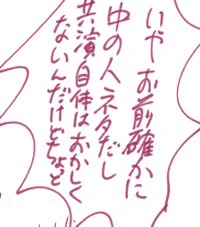 いやお前確かに
中の人ネタだし
共演自体はおかしく
ないんだけどちょっと